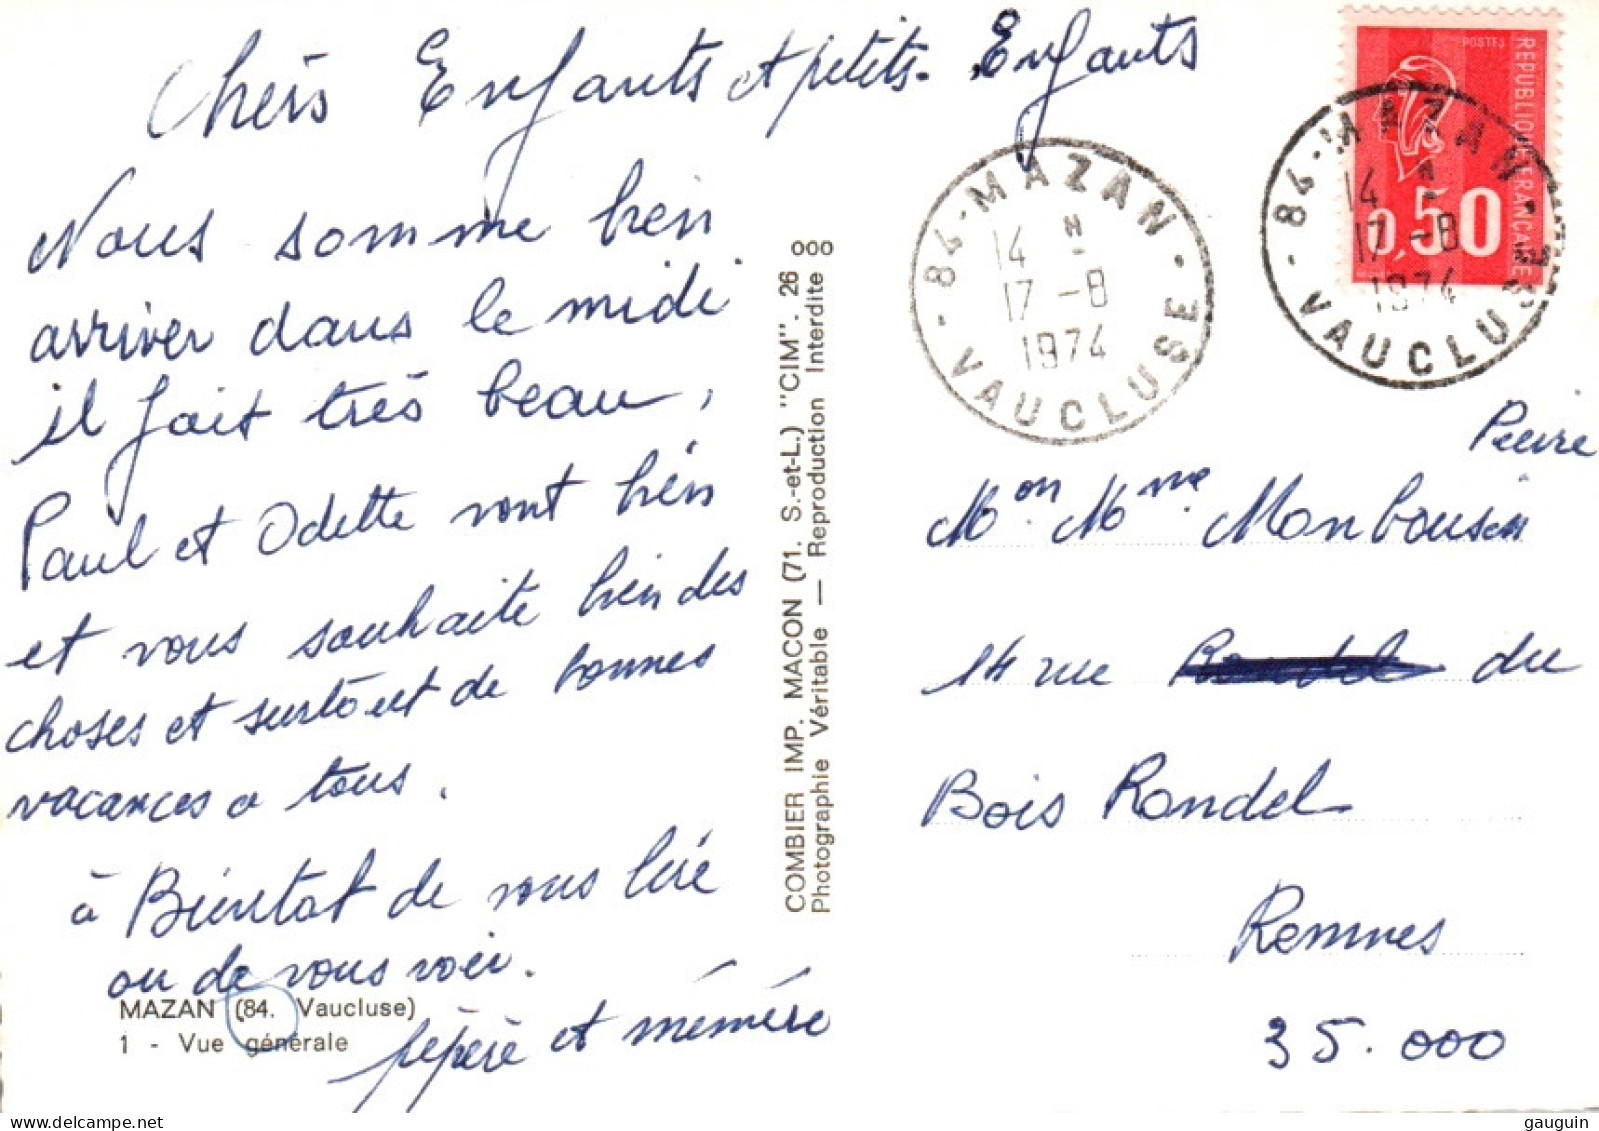 Chers Enfants et petits-Enfants
Nous somme bien
arriver dans le midi
il fait très beau,
Paul et Odette vont bien
et vous souhaite bien des
choses et surtout de bonnes
vacances a tous.
à Bientot de vous lire
ou de vous voir.
pépère et mémère
MAZAN (84. Vaucluse)
1 - Vue générale
COMBIER IMP. MACON (71. S.-et-L.) "CIM". 26 000
Photographie Véritable — Reproduction Interdite
84 - MAZAN - VAUCLUSE
14 H
17 -8
1974
POSTES
REPUBLIQUE FRANÇAISE
0,50
84 - MAZAN - VAUCLUSE
14 H
17 -8
1974
Pierre
Mon Mme Monbousin
14 rue du
Bois Rondel
Rennes
35.000
Delcampe.net
gauguin